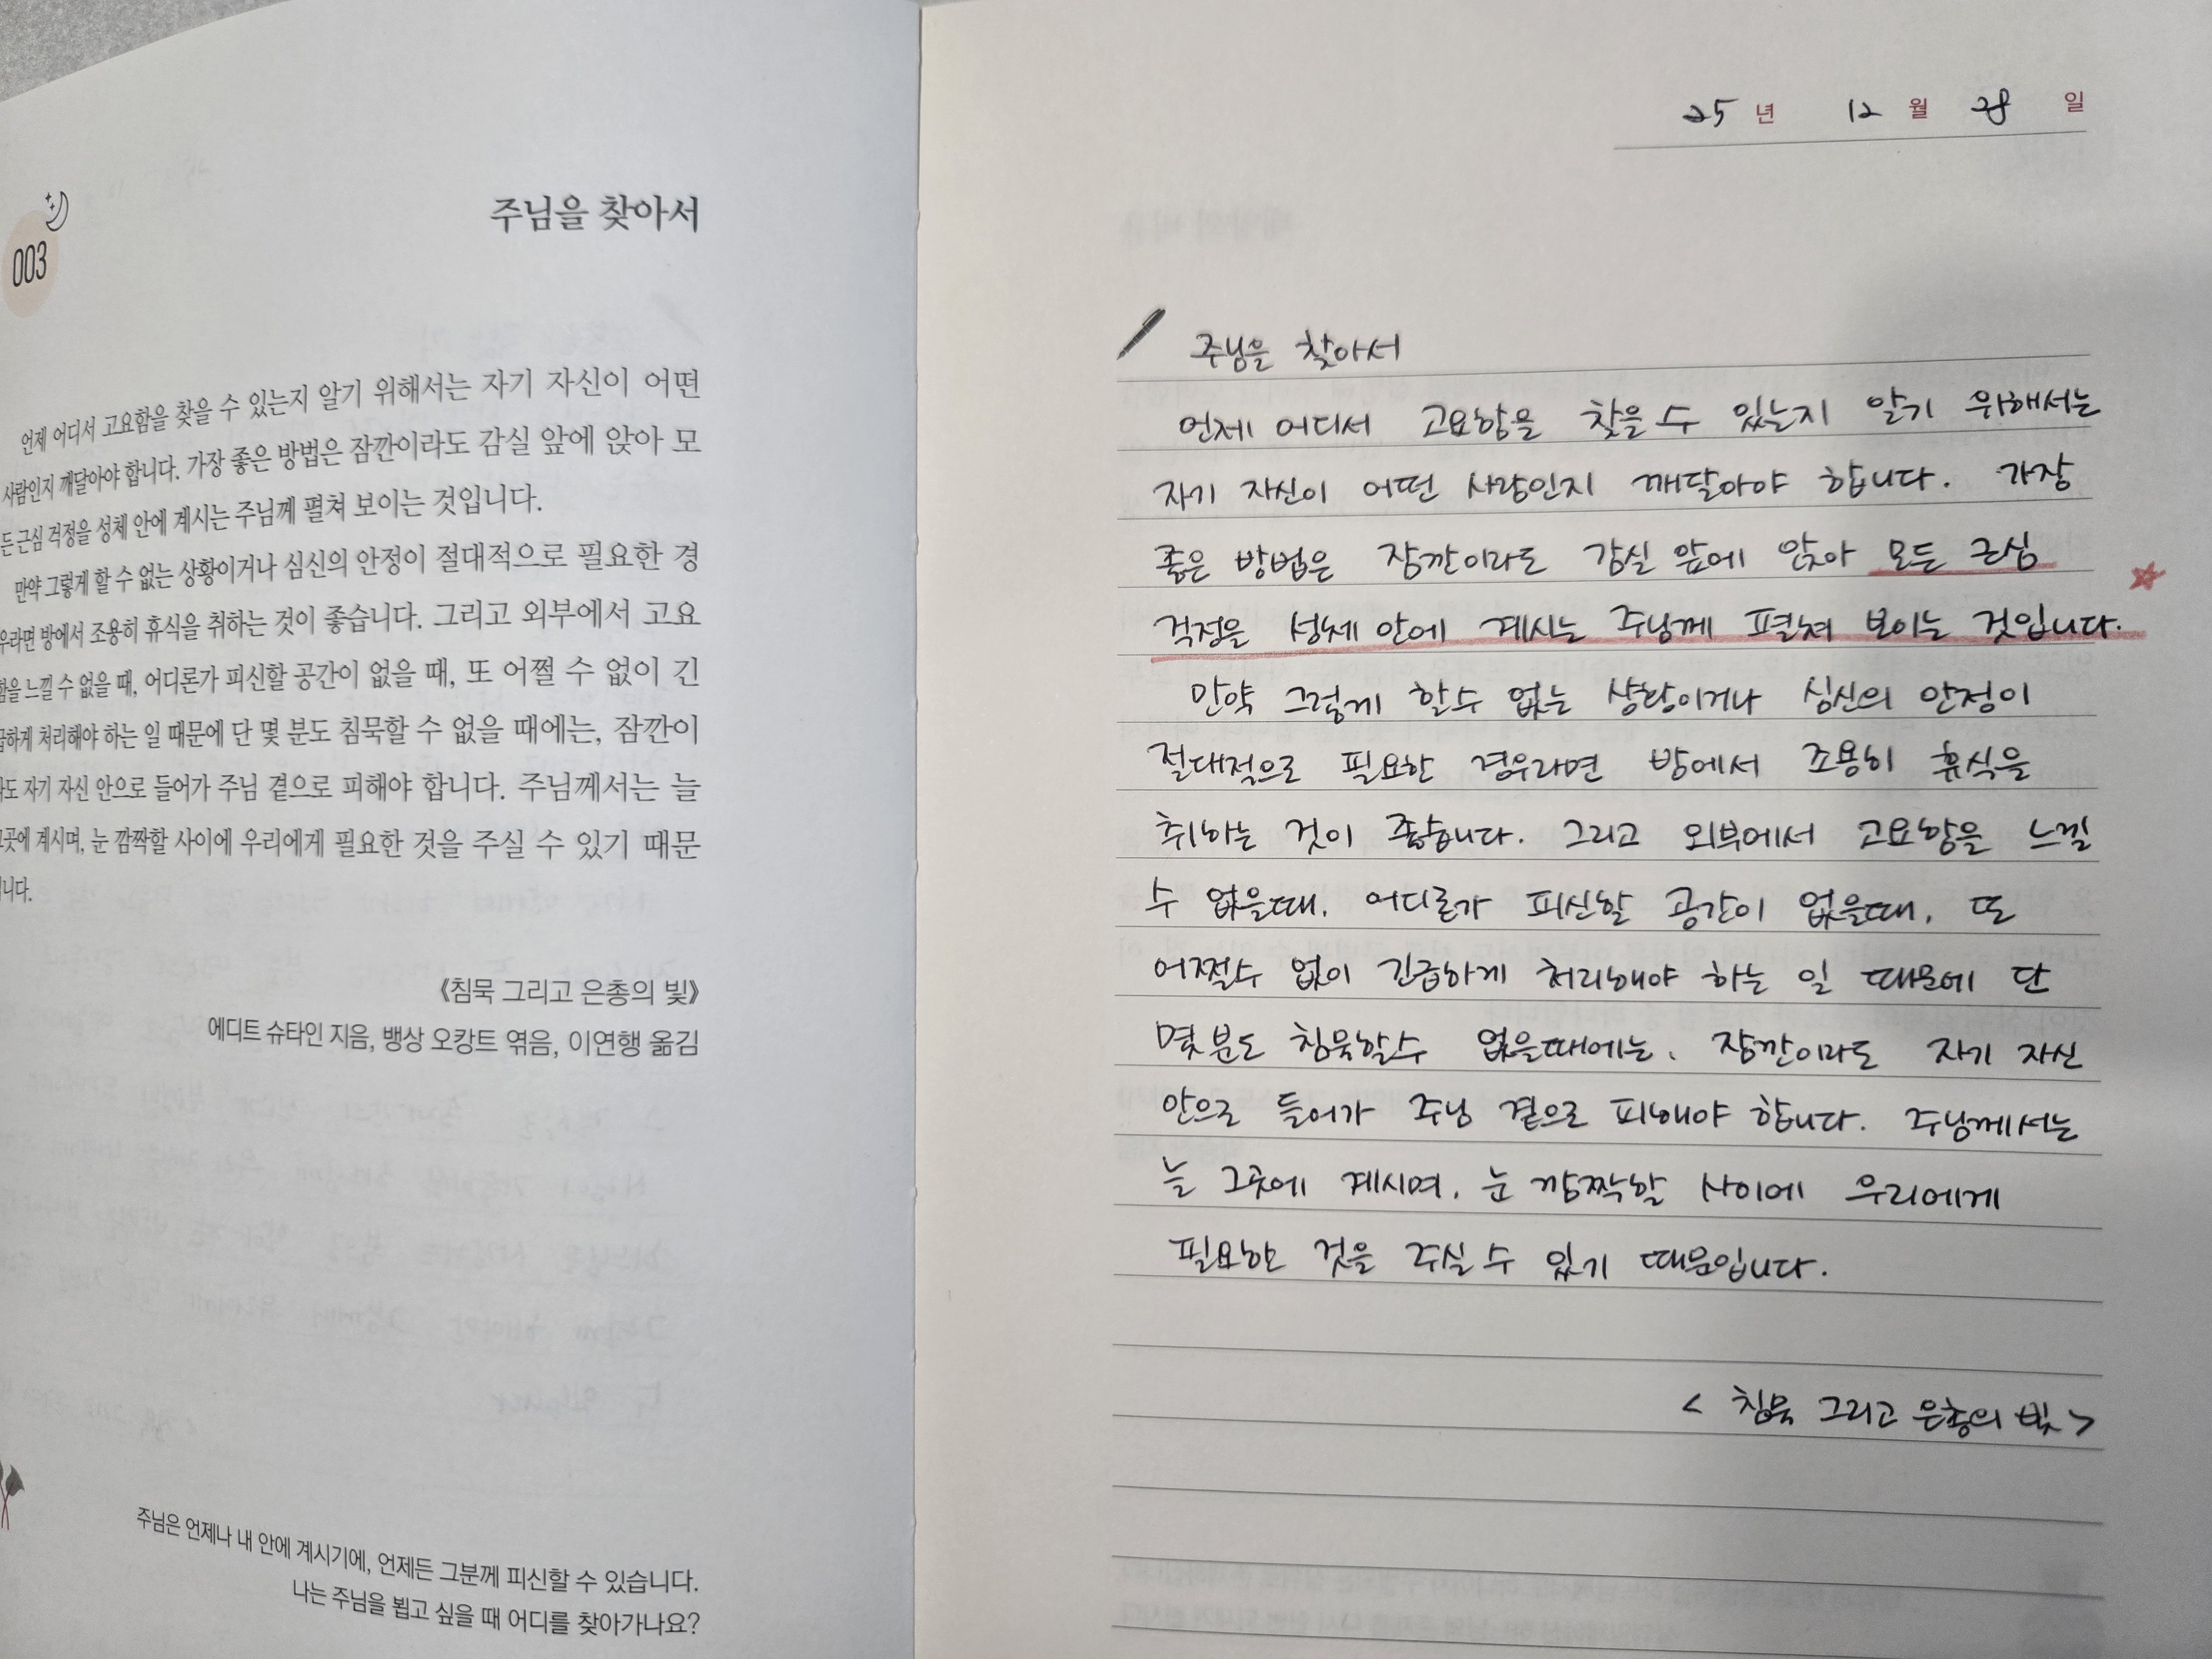 003
주님을 찾아서
언제 어디서 고요함을 찾을 수 있는지 알기 위해서는 자기 자신이 어떤
사람인지 깨달아야 합니다. 가장 좋은 방법은 잠깐이라도 감실 앞에 앉아 모
든 근심 걱정을 성체 안에 계시는 주님께 펼쳐 보이는 것입니다.
만약 그렇게 할 수 없는 상황이거나 심신의 안정이 절대적으로 필요한 경
우라면 방에서 조용히 휴식을 취하는 것이 좋습니다. 그리고 외부에서 고요
함을 느낄 수 없을 때, 어디론가 피신할 공간이 없을 때, 또 어쩔 수 없이 긴
급하게 처리해야 하는 일 때문에 단 몇 분도 침묵할 수 없을 때에는, 잠깐이
라도 자기 자신 안으로 들어가 주님 곁으로 피해야 합니다. 주님께서는 늘
그곳에 계시며, 눈 깜짝할 사이에 우리에게 필요한 것을 주실 수 있기 때문
입니다.
《침묵 그리고 은총의 빛》
에디트 슈타인 지음, 뱅상 오캉트 엮음, 이연행 옮김
주님은 언제나 내 안에 계시기에, 언제든 그분께 피신할 수 있습니다.
나는 주님을 뵙고 싶을 때 어디를 찾아가나요?
25 년 12 월 28 일
주님을 찾아서
언제 어디서 고요함을 찾을 수 있는지 알기 위해서는
자기 자신이 어떤 사람인지 깨달아야 합니다. 가장
좋은 방법은 잠깐이라도 감실 앞에 앉아 모든 근심
걱정을 성체 안에 계시는 주님께 펼쳐 보이는 것입니다.
만약 그렇게 할수 없는 상황이거나 심신의 안정이
절대적으로 필요한 경우라면 방에서 조용히 휴식을
취하는 것이 좋습니다. 그리고 외부에서 고요함을 느낄
수 없을때, 어디론가 피신할 공간이 없을때, 또
어쩔수 없이 긴급하게 처리해야 하는 일 때문에 단
몇분도 침묵할수 없을때에는, 잠깐이라도 자기 자신
안으로 들어가 주님 곁으로 피해야 합니다. 주님께서는
늘 그곳에 계시며, 눈 깜짝할 사이에 우리에게
필요한 것을 주실 수 있기 때문입니다.
< 침묵 그리고 은총의 빛 >